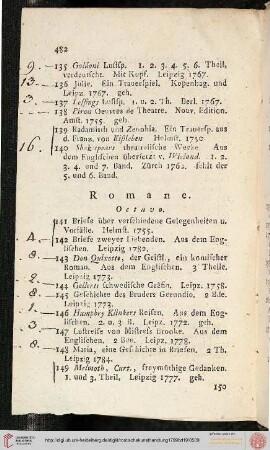 482
9. — 135 Goldoni Lustsp. 1. 2. 3. 4. 5. 6. Theil,
verdeutscht. Mit Kupf. Leipzig 1767.
13. — 136 Julie. Ein Trauerspiel. Kopenhag. und
Leipz. 1767. geh.
3. — 137 Lessings Lustsp. 1. u. 2. Th. Berl. 1767.
138 Piron Oeuvres de Theatre. Nouv. Edition.
Amst. 1755. geh.
139 Radamisth und Zenobia. Ein Trauersp. aus
d. Franz. von Helmst. 1750
16. 140 Shakespears theatralische Werke Aus
dem Englischen übersetzt v. Wieland. 1. 2.
3. 4. und 7. Band. Zürch 1762. fehlt der
5. und 6. Band.
Romane.
Octavo.
141 Briefe über verschiedene Gelegenheiten u.
Vorfälle. Helmst. 1755.
4. — 142 Briefe zweyer Liebenden. Aus dem Eng-
lischen. Leipzig 1782.
8. — 143 Don Quixotte, der Geistl., ein komischer
Roman. Aus dem Englischen. 3 Theile.
Leipzig 1773.
2. — 144 Gellerts schwedische Gräfin. Leipz. 1758.
8. — 145 Geschichte des Bruders Gerundio, 2 Bde.
Leipzig 1773.
1. — 146 Humphry Klinkers Reisen. Aus dem Eng-
lischen. 2. u. 3 B. Leipz. 1772. geh.
3. — 147 Lustreise von Mistress Brooke. Aus dem
Englischen. 2 Ben. Leipz. 1778.
8. — 148 Maria, eine Geschichte in Briefen, 2 Th.
Leipzig 1784.
149 Melmoth, Curt., freymüthige Gedanken.
1. und 3. Theil, Leipzig 1777. geh.
150